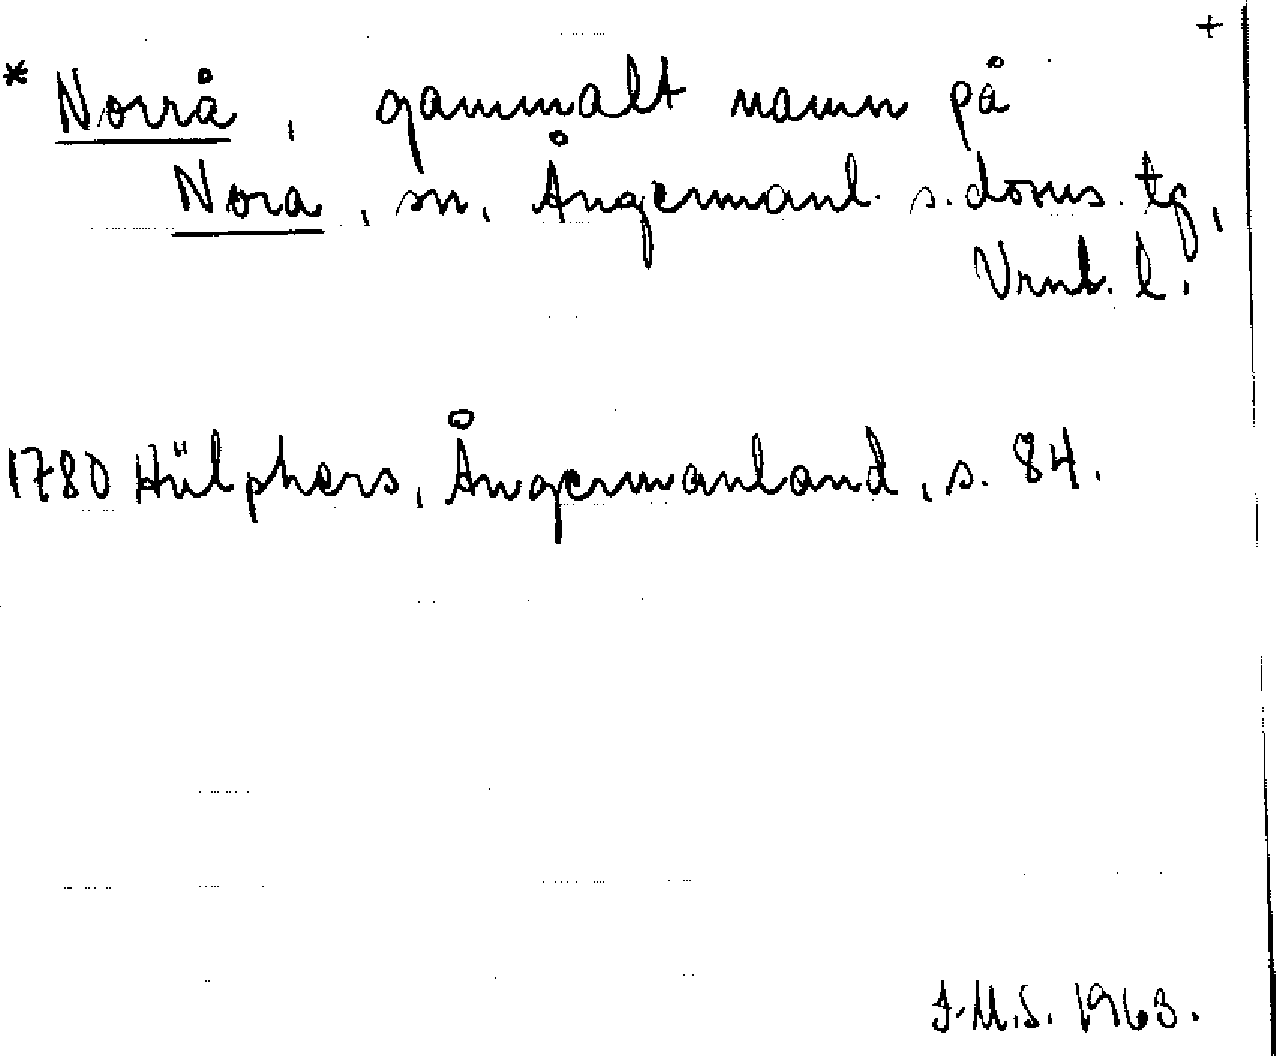 +
* Norrå, gammalt namn på
Nora, sn, Ångermanl. s. doms. tg,
Vrnl. l.
1780 Hülphers, Ångermanland, s. 84.
I.M.S. 1963.